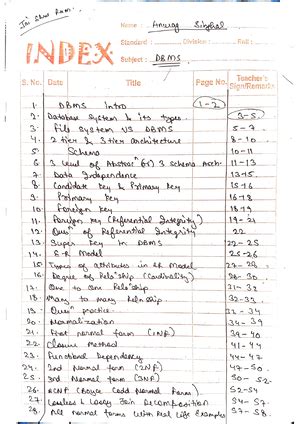 Jai Shree Ram.
Name : Anurag Singhal
Standard : Division : Roll :
INDEX Subject : DBMS
S. No. Date Title Page No. Teacher's Sign/Remarks
1. DBMS Intro 1-2
2. Database System & its types. 3-5
3. File System VS DBMS 5-7
4. 2 tier & 3 tier architecture 8-10
5. Schema 10-11
6. 3 Level of Abstracn (or) 3 schema Arch. 11-13
7. Data Independence 13-15
8. Candidate Key & Primary Key 15-16
9. Primary Key 16-18
10. Foreign Key 18-19
11. Foreign Key (Referential Integrity) 19-21
12. Quesn of Referential Integrity 22
13. Super Key in DBMS 22-25
14. E-R Model 25-26
15. Types of attributes in ER Model 27-28
16. Degree of Relnship (Cardinality) 28-30
17. One to One Relnship
18. Many to many Relnship. 32-33
19. Quesn practice. 33-34
20. Normalization 34-39
21. First normal form (1NF) 39-40
22. Closure Method 41-44
23. Functional Dependency 44-47
24. 2nd Normal form (2NF) 47-50
25. 3rd Normal form (3NF) 50-52
26. BCNF (Boyce Codd Normal Form)
27. Lossless & Lossy Join Decomposition
28. All normal forms with Real Life Examples 57-58